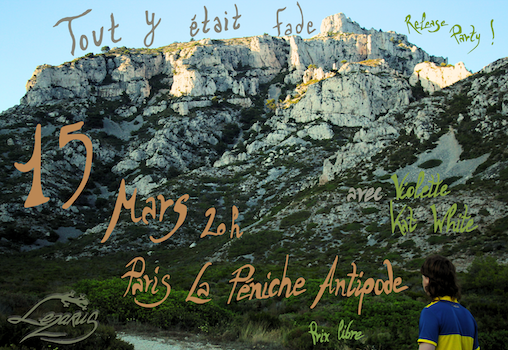 Tout y était fade
Release Party !
15 Mars 20h
avec Violette
Kat White
Paris La Péniche Antipode
Prix libre